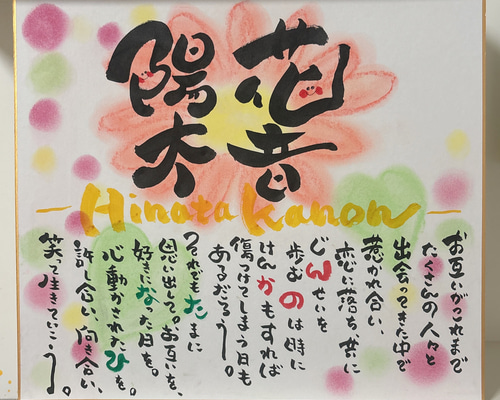 花音
陽太
Hinata Kanon
お互いがこれまで
たくさんの人々と
出会ってきた中で
惹かれ合い、
恋に落ち、共に
じんせいを
歩むのは時に
けんかもすれば
傷つけてしまう日も
あるだろう。
それでもたまに
思い出して。お互いを、
好きになった日を。
心動かされたひを。
許し合い、向き合い、
笑って生きていこう。